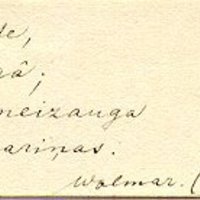 de,
gâ;
neizauga
ariņas.
Wolmar. (